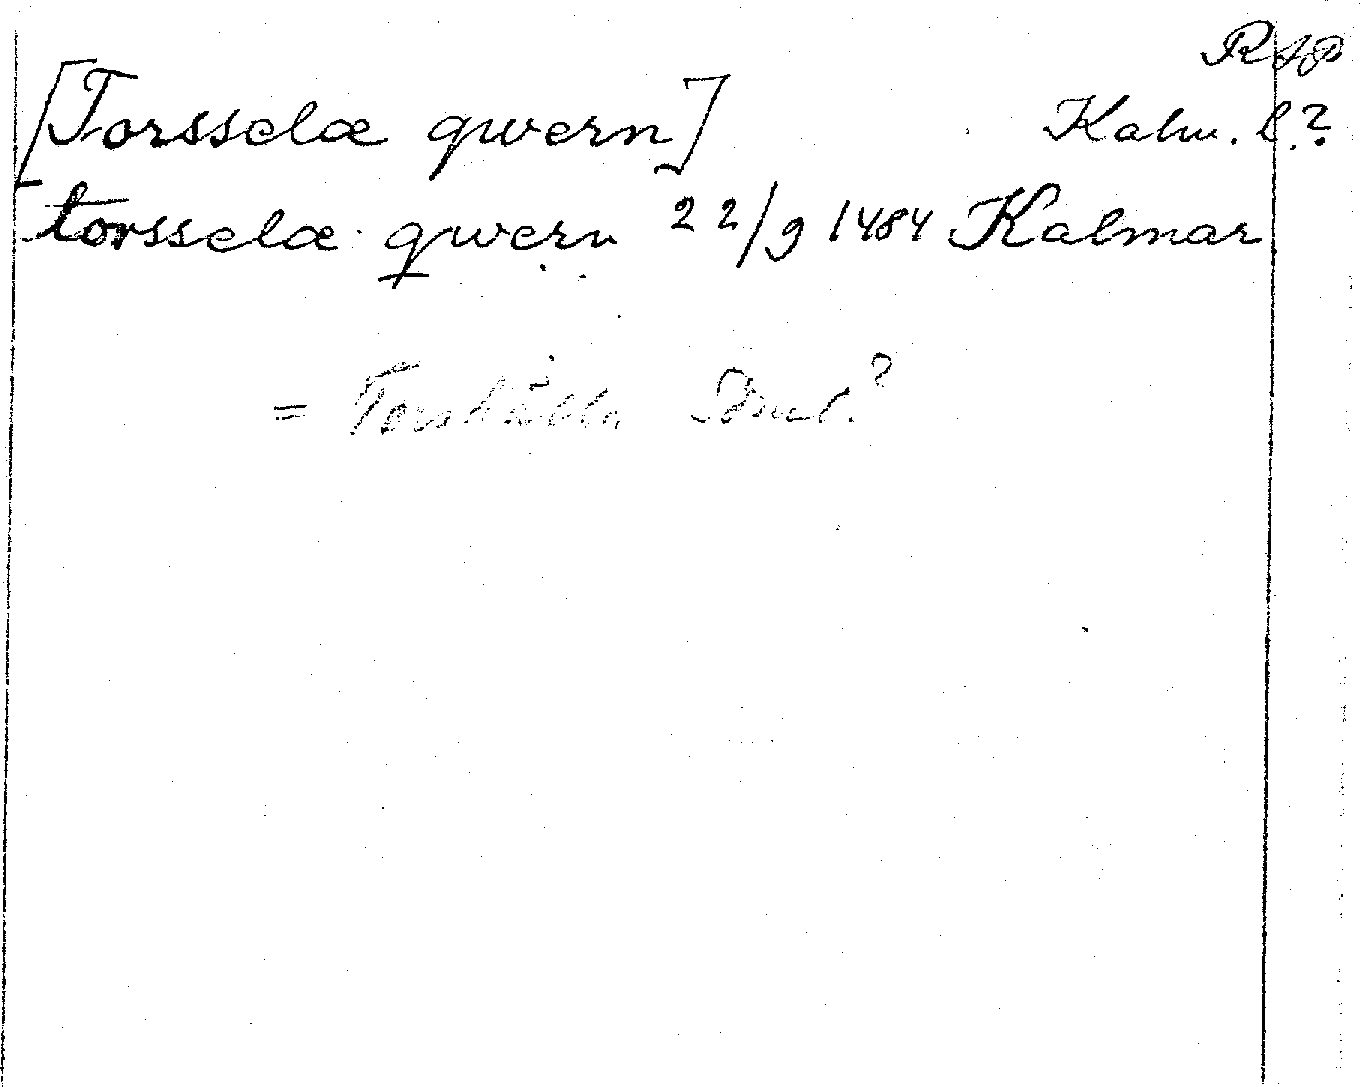 RAP
[Torsselæ qwern] Kalm. l.?
torsselæ qwern 22/9 1484 Kalmar
= Torshälla Söml.?